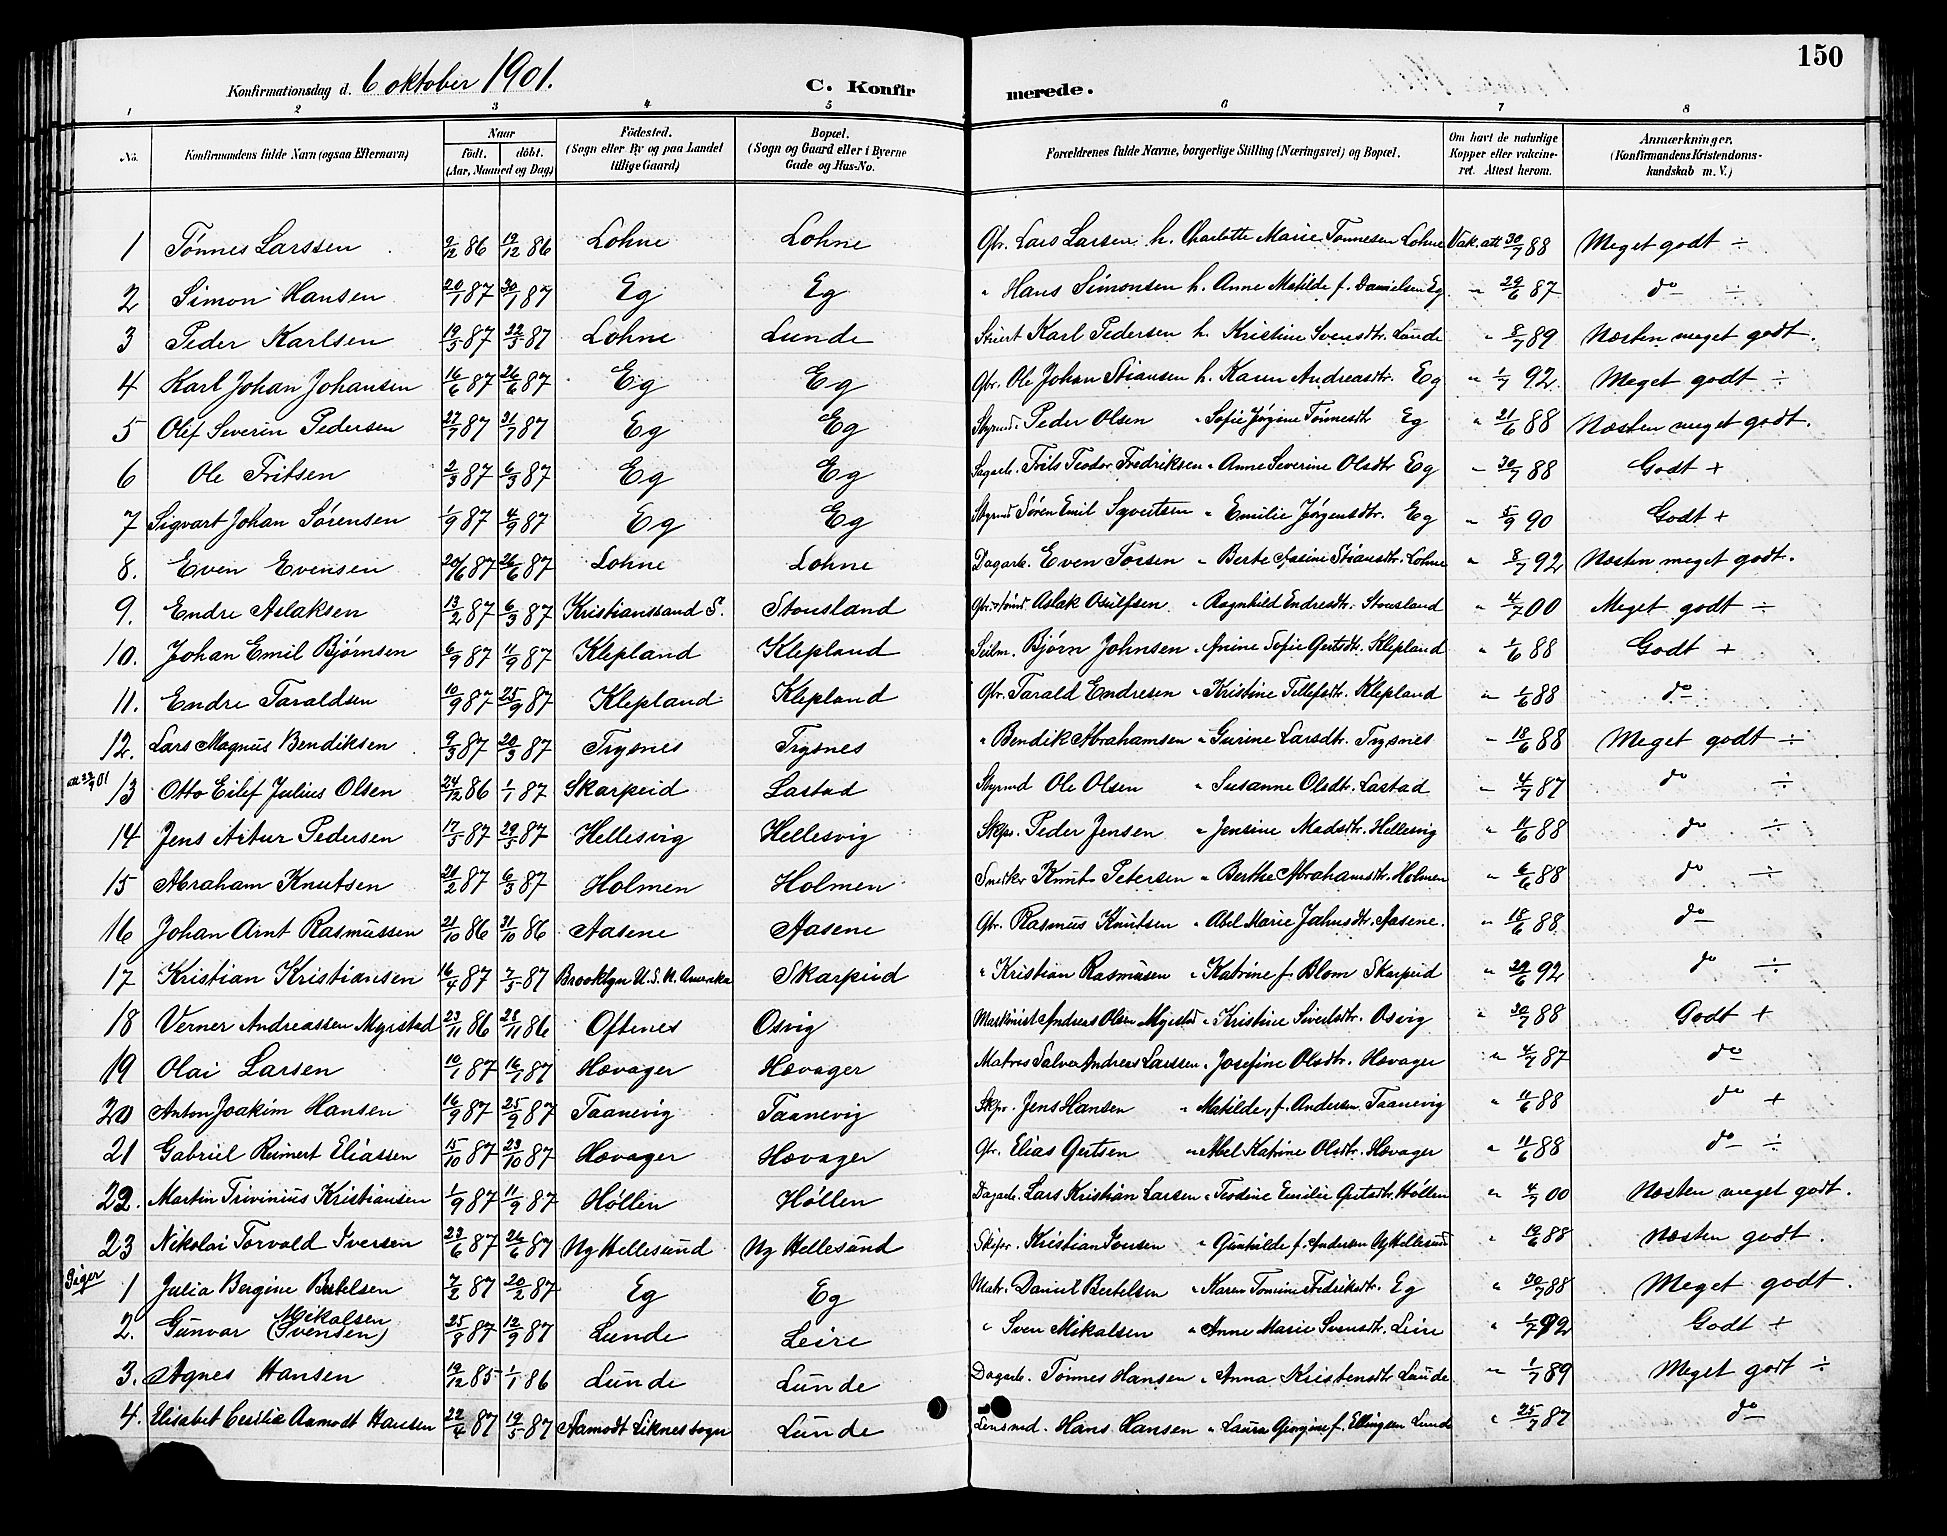 150
Konfirmationsdag d. 6 oktober 1901. C. Konfirmerede.
1 2 3 4 5 6 7 8
No. Konfirmandens fulde Navn (ogsaa Efternavn) Naar födt. döbt. (Aar, Maaned og Dag) Födested. (Sogn eller By og paa Landet tillige Gaard) Bopæl. (Sogn og Gaard eller i Byerne Gade og Hus-No. Forældrenes fulde Navne, borgerlige Stilling (Næringsvei) og Bopæl. Om havt de naturlige Kopper eller vakcineret. Attest herom. Anmærkninger. (Konfirmandens Kristendomskundskab m. V.)
1 Tönnes Larssen 9/12 86 19/12 86 Lohne Lohne Gbr. Lars Larsen h. Charlotte Marie Tönnesen Lohne Vak. att 30/7 88 Meget godt ÷
2 Simon Hansen 20/1 87 30/1 87 Eg Eg " Hans Simonsen h. Anne Matilde f. Danielsen Eg " 29/6 87 do ÷
3 Peder Karlsen 19/3 87 Lohne Lunde Stuert Karl Pedersen h. Kristine Svensdtr. Lunde " 8/7 89 Næsten meget godt.
4 Karl Johan Johansen 16/6 87 26/6 87 Eg Eg Gbr. Ole Johan Stiansen h. Karen Andreasdtr. Eg " 1/7 92. Meget godt ÷
5 Olef Severin Pedersen 27/7 87 31/7 87 Eg Eg Styrmd. Peder Olsen " Sofie Jørgine Tönnesdtr Eg " 21/6 88 Næsten meget godt.
6 Ole Fritsen 2/3 87 6/3 87 Eg Eg Sagarb. Frits Teodor Fredriksen " Anne Severine Olsdtr Eg " 30/7 88 Godt +
7 Sigvart Johan Sörensen 1/9 87 4/9 87 Eg Eg Styrmd Søren Emil " Emilie Jørgensdtr. Eg " 5/9 90 Godt +
8. Even Evensen 20/6 87 26/6 87 Lohne Lohne Dagarb. Even Torsen " Berte Aasine Stiansdtr. Lohne " 8/7 92 Næsten meget godt.
9. Endre Aslaksen 13/2 87 6/3 87 Kristianssand S. Stousland Aslak Asulfsen " Ragnhild Endresdtr. Stousland " 4/7 00 Meget godt ÷
10. Johan Emil Bjørnsen 6/9 87 11/9 87 Klepland Klepland Seilm. Bjørn Johnsen " Anine Sofie Gertsdtr. Klepland " 1/6 88 Godt +
11. Endre Taraldsen 10/9 87 25/9 87 Klepland Klepland Gbr. Tarald Endresen " Kristine Tellefsdtr. Klepland " 1/6 88 do
12. Lars Magnus Bendiksen 9/3 87 20/3 87 Trysnes Trysnes " Bendik Abrahamsen " Gurine Larsdtr. Trysnes " 18/6 88 Meget godt ÷
13 Otto Eilef Julius Olsen 24/12 86 1/1 87 Skarpeid Lastad Styrmd Ole Olsen " Susanne Olsdtr. Lastad " 4/7 87 do ÷
14 Jens Artur Pedersen 17/5 87 29/5 87 Hellesvig Hellesvig Skpr. Peder Jensen " Jensine Madsdtr. Hellesvig " 11/6 88 do ÷
15 Abraham Knutsen 21/2 87 6/3 87 Holmen Holmen Snedker Knut Petersen " Berthe Abrahamsdtr. Holmen " 6/6 88 do ÷
16 Johan Arnt Rasmussen 21/10 86 31/10 86 Aasene Aasene Gbr. Rasmus Knutsen " Abel Marie Jahnsdtr. Aasene. " 18/6 88 do
17 Kristian Kristiansen 16/4 87 7/5 87 Brooklyn U.S.N. Amerika Skarpeid " Kristian Rasmusen " Katrine f. Blom Skarpeid " 29/6 92 do ÷
18 Verner Andreassen Myrstad 23/11 86 28/11 86 Oftenes Osvig Maskinist Andreas Olsen Myrstad " Kristine Siverlsdtr. Osvig " 30/7 88 Godt +
19 Olai Larsen 10/1 87 16/1 87 Hævager Hævager Matros Salve Andreas Larssen " Josefine Olsdtr. Hævager " 4/7 87 do
20 Anton Joakim Hansen 16/9 87 25/9 87 Taanevig Taanevig Skpr. Jens Hansen " Matilde, f. Andersen Taanevig " 11/6 88 do +
21 Gabriel Reimert Eliassen 15/10 87 23/10 87 Hævager Hævager Gbr. Elias Gertsen " Abel Katrine Olsdtr. Hævager " 11/6 88 do ÷
22. Martin Trivinius Kristiansen 1/9 87 11/9 87 Höllen Höllen Dagarb. Lars Kristian Larsen " Teodine Emilie Gertsdtr. Höllen " 4/7 00 Næsten meget godt.
23 Nikolai Torvald Iversen 22/6 87 26/6 87 Ny Hellesund Ny Hellesund Skipr. Kristian Iversen " Gunhilde f. Andersen Ny Hellesund " 19/6 88 Næsten godt.
Piger
1 Julia Bergine Bertelsen 7/2 87 20/2 87 Eg Eg Matr. Daniel Bertelsen " Karen Tomine Fredriksdtr. Eg " 30/7 88 Meget godt.
2. Gunvar Mikalsen (Svensen) 25/8 87 12/9 87 Lunde Leire " Sven Mikalsen " Anne Marie Svensdtr. Leire " 1/7 92 Godt +
3. Agnes Hansen 19/12 85 1/1 86 Lunde Lunde Dagarb. Tönnes Hansen " Anna Kristensdtr Lunde " 1/7 89 Meget godt ÷
4. Elisabet Cecilie Aamodt Hansen 22/4 87 19/5 87 Aamodt Liknes sogn Lunde Lensmd. Hans Hansen " Laura Georgine f. Ellingsen Lunde " 25/7 87 do